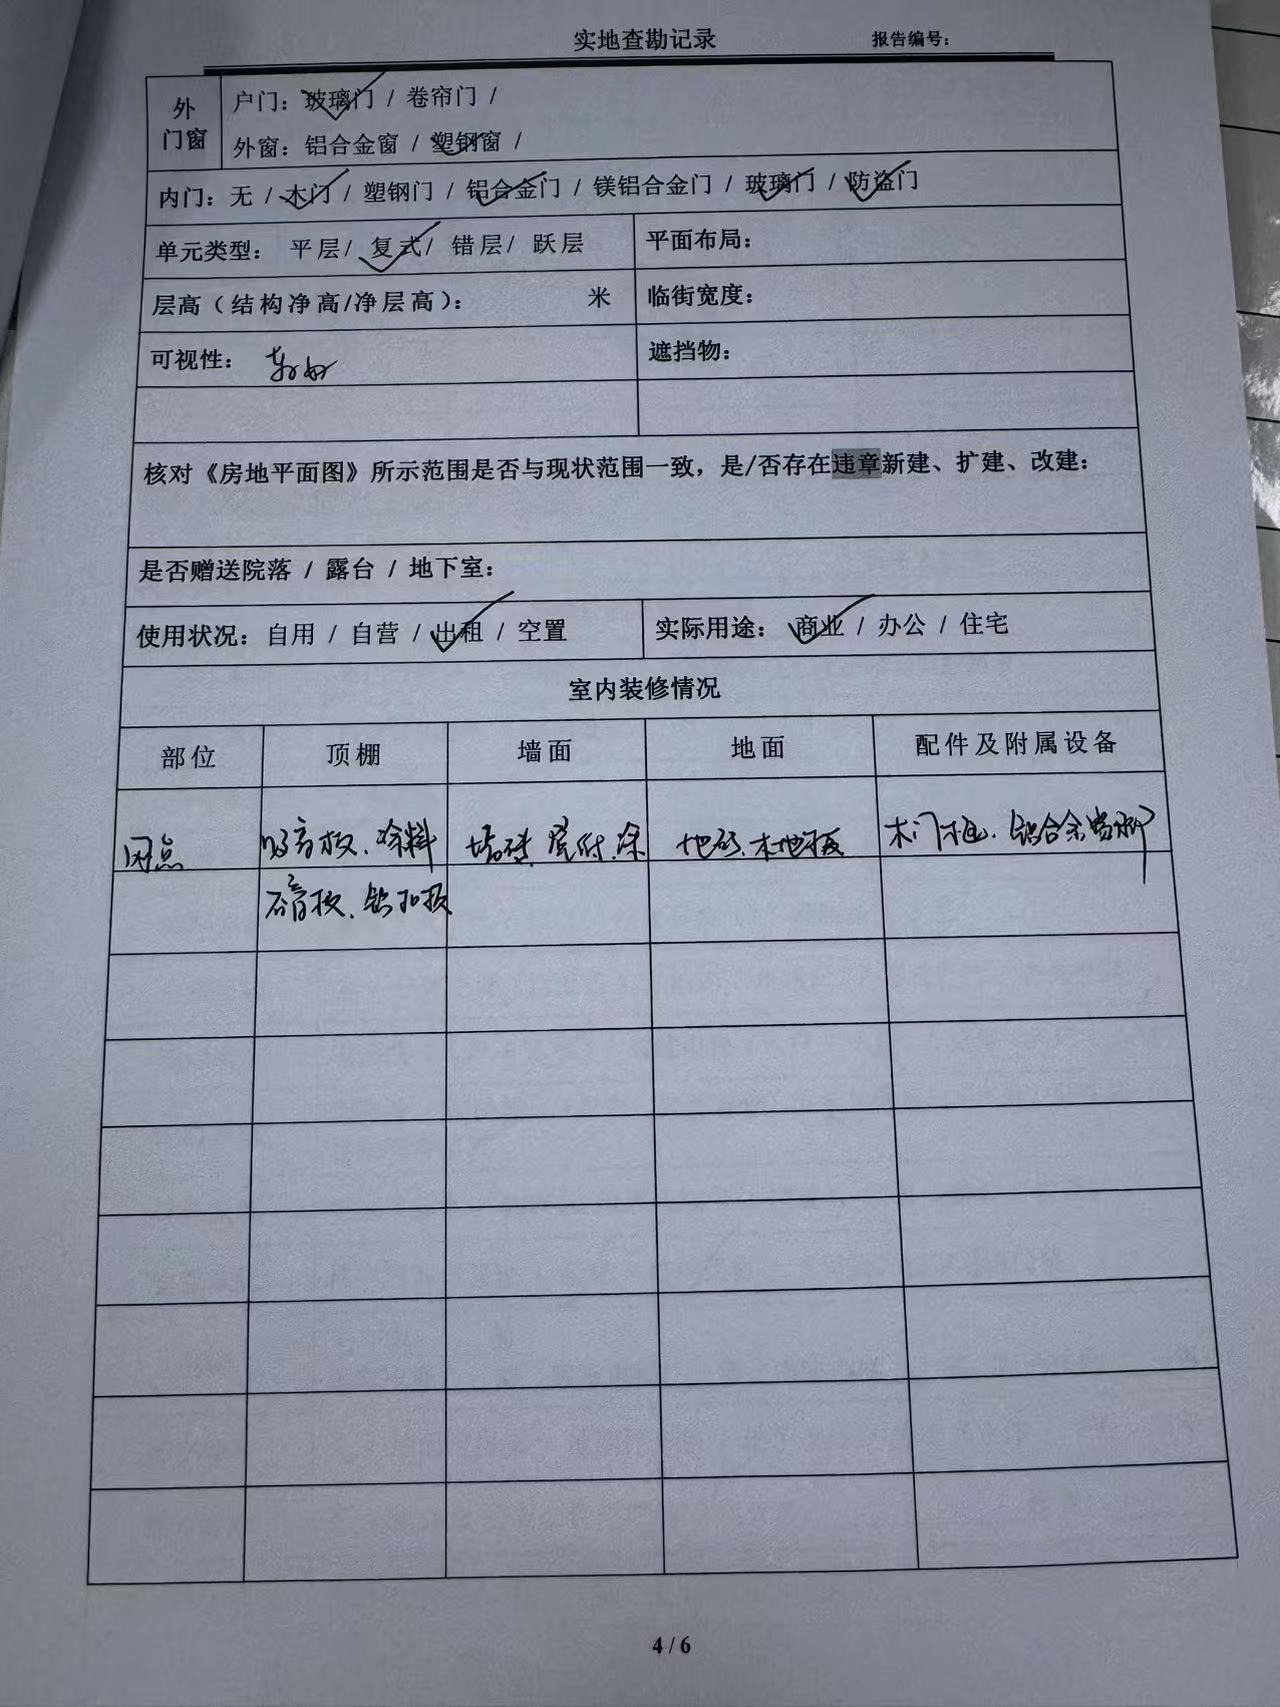 实地查勘记录
报告编号：
外
门窗
户门：玻璃门 / 卷帘门 /
外窗：铝合金窗 / 塑钢窗 /
内门：无 / 木门 / 塑钢门 / 铝合金门 / 镁铝合金门 / 玻璃门 / 防盗门
单元类型： 平层/ 复式/ 错层/ 跃层
平面布局：
层高（结构净高/净层高）： 米
临街宽度：
可视性： 较好
遮挡物：
核对《房地平面图》所示范围是否与现状范围一致，是/否存在违章新建、扩建、改建：
是否赠送院落 / 露台 / 地下室：
使用状况：自用 / 自营 / 出租 / 空置
实际用途： 商业 / 办公 / 住宅
室内装修情况
部位
顶棚
墙面
地面
配件及附属设备
网点
吸音板、涂料
墙砖、
地砖、木地板
木门框、铝合金
石膏板、铝扣板
4 / 6